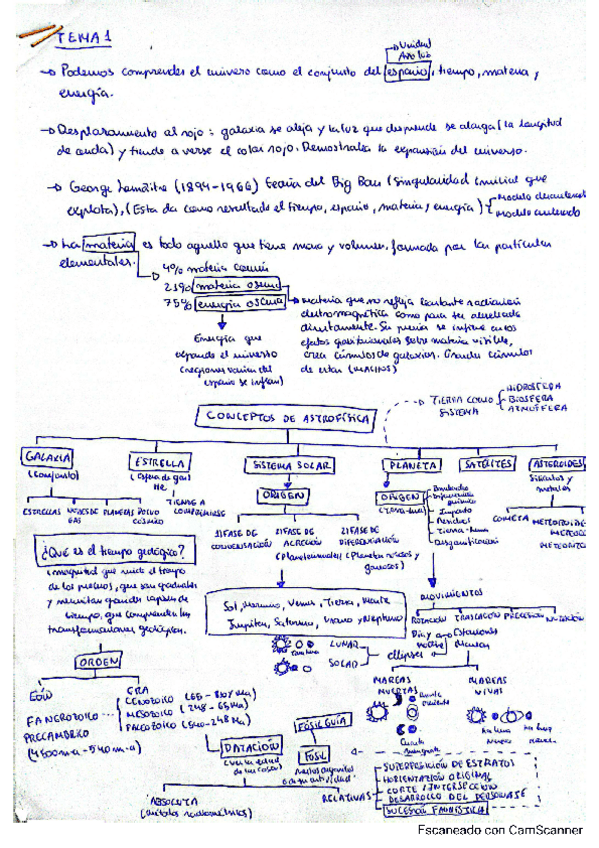 TEMA 1
Unidad
→ Podemos comprender el universo como el conjunto del espacio, tiempo, materia y
energía.
→ Desplazamiento al rojo: galaxia se aleja y la luz que desprende se alarga (la longitud
de onda) y tiende a verse el color rojo. Demostraba la expansión del universo.
→ George Lemaitre (1894-1966) Teoría del Big Bang (singularidad inicial que
explota), (Esta da como resultado el tiempo, espacio, materia, y energía)
→ La materia es todo aquello que tiene masa y volumen, formada por las partículas
elementales.
4% materia común
21% materia oscura
75% energía oscura
Materia que no refleja bastante radiación
electromagnética como para ser detectada
directamente. Su se infiere en los
efectos gravitacionales sobre materia visible,
crea cúmulos de galaxias. Grandes cúmulos
de estar (MACHOS)
Energía que
expande el universo
(regiones vacías del
espacio se inflan)
CONCEPTOS DE ASTROFÍSICA
TIERRA COMO SISTEMA
HIDROSFERA
BIOSFERA
ATMÓSFERA
GALAXIA
(Conjunto)
ESTRELLAS NUBES DE GAS PLANETAS POLVO CÓSMICO
ESTRELLA
(Esfera de gas)
He
TIENDE A
COMPRIMIRSE
SISTEMA SOLAR
ORIGEN
1) FASE DE
CONDENSACIÓN
2) FASE DE
ACRECIÓN
(Planetesimales)
3) FASE DE
DIFERENCIACIÓN
(Planetas rocosos y
gaseosos)
Sol, Mercurio, Venus, Tierra, Marte
Júpiter, Saturno, Urano y Neptuno
PLANETA
ORIGEN
(Tierra-luna)
Impacto
Tierra-luna
Desgasificación
SATÉLITES
ASTEROIDES
COMETA
METEOROIDE
METEORO
METEORITO
MOVIMIENTOS
ROTACIÓN TRASLACIÓN PRECESIÓN NUTACIÓN
Día y
noche
Estaciones
eclipses
LUNAR
SOLAR
MAREAS
MUERTAS
Cuarto
creciente
Cuarto
menguante
MAREAS
VIVAS
luna
nueva
luna
¿Qué es el tiempo geológico?
(magnitud que mide el tiempo
de los procesos, que son graduales
y necesitan grandes lapsos de
tiempo, que comprenden las
transformaciones geológicas.
ORDEN
EÓN
FANEROZOICO
PRECÁMBRICO
(4500 m.a - 540 m.a)
ERA
CENOZOICO
MESOZOICO (248 - 65 Ma)
PALEOZOICO (540 - 248 Ma)
DATACIÓN
(Ver la edad
de las cosas)
FÓSIL GUÍA
FÓSIL
ABSOLUTA
(Métodos radiométricos)
RELATIVAS
SUPERPOSICIÓN DE ESTRATOS
HORIZONTACIÓN ORIGINAL
CORTE / INTERSECCIÓN
SUCESIÓN FAUNÍSTICA
Escaneado con CamScanner